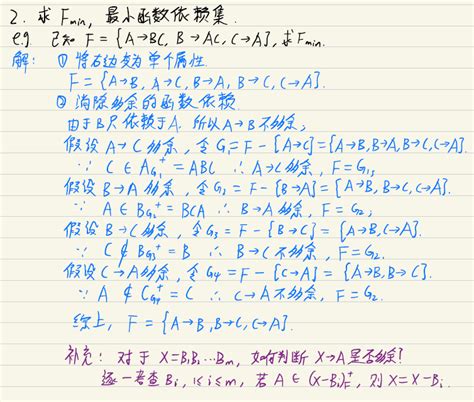 2. 求 Fmin, 最小函数依赖集.
e.g. 已知 F = {A→BC, B→AC, C→A}, 求 Fmin.
解: ① 将右边变为单个属性
F = {A→B, A→C, B→A, B→C, C→A}.
② 消除多余的函数依赖
由于B只依赖于A, 所以A→B不多余,
假设 A→C 多余, 令 G₁=F-{A→C}={A→B,B→A,B→C,C→A}.
∵ C ∈ A_{G₁}⁺ = ABC ∴ A→C多余, F=G₁,
假设 B→A 多余, 令 G₂ = F-{B→A} = {A→B, B→C, C→A}.
∵ A ∈ B_{G₂}⁺ = BCA ∴ B→A多余, F = G₂,
假设 B→C 多余, 令 G₃ = F-{B→C} = {A→B,C→A}.
∵ C ∉ B_{G₃}⁺ = B ∴ B→C不多余, F=G₂.
假设 C→A多余, 令 G₄ = F-{C→A} = {A→B,B→C}.
∵ A ∉ C_{G₄}⁺ = C ∴ C→A不多余, F=G₂
综上, F = {A→B,B→C,C→A}
补充: 对于 X=B₁B₂…Bm, 如何判断 X→A是否多余?
逐一考查 Bi, 1≤i≤m, 若 A ∈ (X-Bi)_F⁺, 则 X=X-Bi.